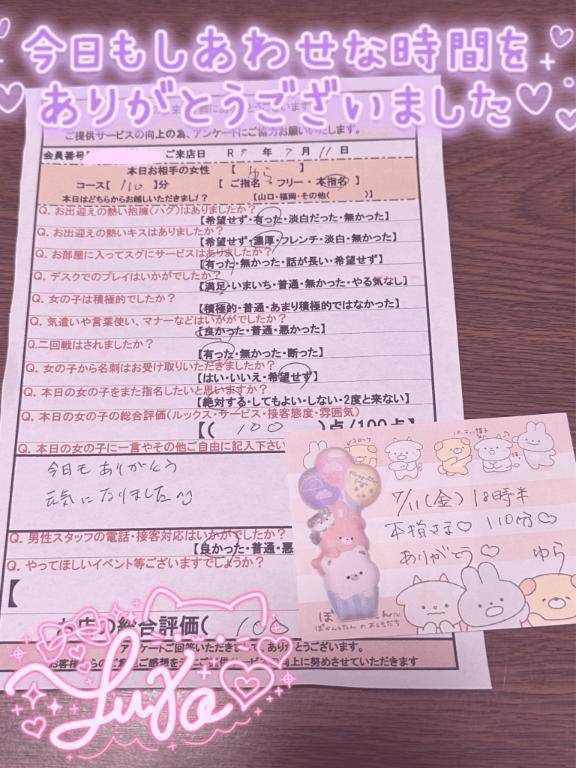 今日もしあわせな時間を
ありがとうございました
ご提供サービスの向上の為、アンケートにご協力お願いいたします。
会員番号 ご来店日 R7 年 7 月 11 日
本日お相手の女性 【 ゆら
コース【 110 】分 【 ご指名 ・ フリー ・ 本指名 】
本日はどちらからお越しいただきましたか? 【山口・福岡・その他( )】
Q. お出迎えの熱い抱擁(ハグ)はありましたか?
【希望せず・有った・淡白だった・無かった】
Q. お出迎えの熱いキスはありましたか?
【希望せず・濃厚・フレンチ・淡白・無かった】
Q. お部屋に入ってスグにサービスはありましたか?
【有った・無かった・話が長い・希望せず】
Q. デスクでのプレイはいかがでしたか?
【満足・いまいち・普通・無かった・やる気なし】
Q. 女の子は積極的でしたか?
【積極的・普通・あまり積極的ではなかった】
Q. 気遣いや言葉使い、マナーなどはいかがでしたか?
【良かった・普通・悪かった】
Q.二回戦はされましたか?
【有った・無かった・断った】
Q. 女の子から名刺はお受け取りいただきましたか?
【はい・いいえ・希望せず】
Q. 本日の女の子をまた指名したいと思いますか?
【絶対する・してもよい・しない・2度と来ない】
Q. 本日の女の子の総合評価(ルックス・サービス・接客態度・雰囲気)
【( 100 )点/100点】
Q. 本日の女の子に一言やその他ご自由に記入下さい
今日もありがとう
元気になりました
Q. 男性スタッフの電話・接客対応はいかがでしたか?
【良かった・普通・悪
Q. やってほしいイベント等ございますでしょうか?
【
お店の総合評価( 100
アンケートご回答いただきまして、ありがとうございます。
7/11(金) 18時半
本指さま♡ 110分♡
ありがとう♡
ゆら
Yura